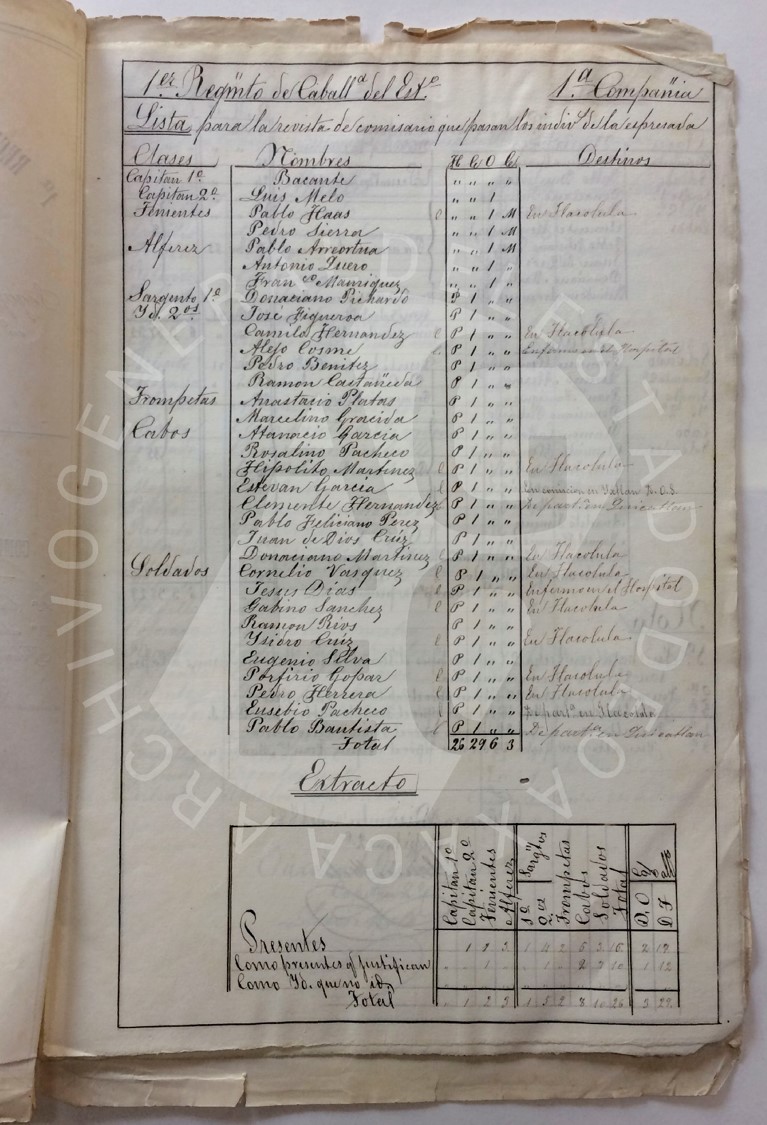 1er Regimto de Caballa del Esto. 1a Compañia
Lista para la revista de comisario que pasan los individs de la espresada
Clases Nombres H C O C Destinos
Capitán 1o Bacante " " " "
Capitan 2o Luis Melo " " 1
Tenientes Pablo Haas l " " 1 M En Tlacolula
Pedro Sierra " " 1 M
Alferez Pablo Arreortua " " 1 M
Antonio Zuero " " 1 "
Franco Manriquez " " 1 "
Sargento 1o Donaciano Pichardo P 1 " "
Yd. 2os Jose Figueroa P 1 " "
Camilo Hernandez l P 1 " " En Tlacolula
Alejo Cosme l P 1 " " Enfermo en el Hospital
Pedro Benitez P 1 " "
Ramon Castañeda P 1 " "
Trompetas Anastacio Platas P 1 " "
Marcelino Gracida P 1 " "
Cabos Atanacio Garcia P 1 " "
Rosalino Pacheco P 1 " "
Hipolito Martinez l P 1 " " En Tlacolula
Estevan Garcia l P 1 " " En comicion en
Clemente Hernandez l P 1 " " en
Pablo Feliciano Perez P 1 " "
Juan de Dios Cruz P 1 " "
Donaciano Martinez l P 1 " " En Tlacolula
Soldados Cornelio Vasquez l P 1 " " En Tlacolula
Jesus Dias l P 1 " " Enfermo en el Hospital
Gabino Sanchez l P 1 " " En Tlacolula
Ramon Rios P 1 " "
Ysidro Cruz l P 1 " " En Tlacolula
Eugenio Silva P 1 " "
Porfirio Gopar l P 1 " " En Tlacolula
Pedro Herrera l P 1 " " En Tlacolula
Eusebio Pacheco l P 1 " " en Tlacolula
Pablo Bautista l P 1 " " en
Total 26 29 6 3
Extracto
Capitán 1o Capitán 2o Tenientes Alferez Sargtos 1o 2os Trompetas Cabos Soldados Total D. O D F
Presentes . 1 1 3 1 4 2 6 3 16 2 17
Como presentes q justifican . . 1 . . 1 . 2 7 10 1 12
Como Yd. que no id.
Total . 1 2 3 1 5 2 8 10 26 3 29
ARCHIVO GENERAL DEL ESTADO DE OAXACA